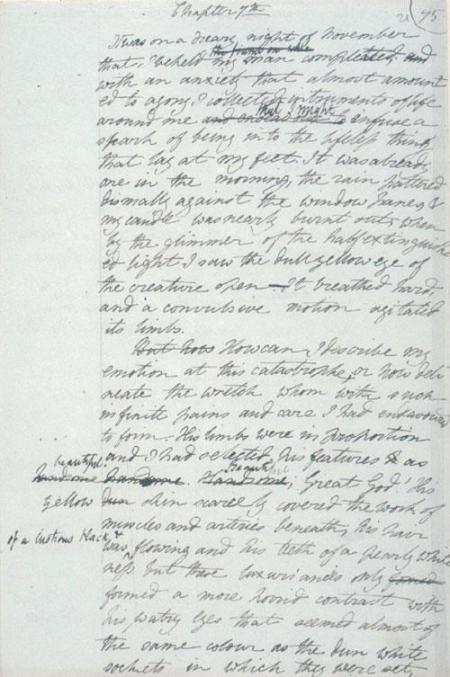 Chapter 7th
21 75
It was on a dreary night of November
the frame on whic
that I beheld my man compleated and
with an anxiety that almost amount
ed to agony I collected instruments of life
that I might
around me and endeavoured to infuse a
spark of being into the lifeless thing
that lay at my feet. It was already
one in the morning, the rain pattered
dismally against the window panes &
my candle was nearly burnt out, when
by the glimmer of the half extinguish
ed light I saw the dull yellow eye of
the creature open—It breathed hard
and a convulsive motion agitated
its limbs.
But how How can I describe my
emotion at this catastrophe; or how deli
neate the wretch whom with such
infinite pains and care I had endeavoured
to form. His limbs were in proportion
beautiful.
and I had selected his features & as
Beautiful
handsome handsome. Handsome; Great God! His
yellow dun skin scarcely covered the work of
muscles and arteries beneath; his hair
of a lustrous black, &
was flowing and his teeth of a pearly white
ness but these luxuriances only
formed a more horrid contrast with
his watry eyes that seemed almost of
the same colour as the dun white
sockets in which they were set,